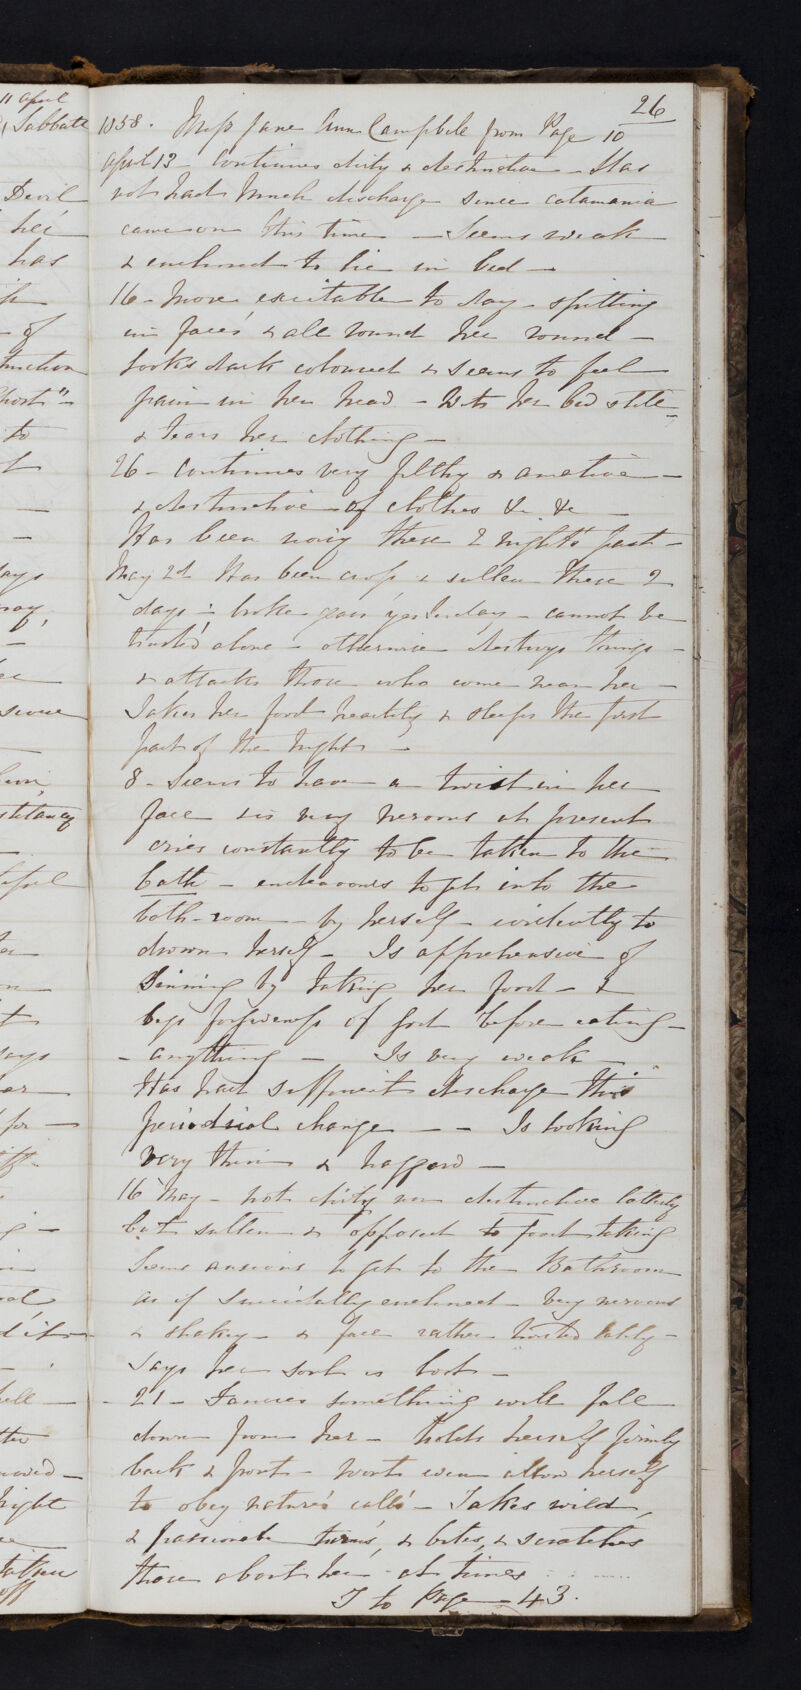 11 April
Sabbath
Devil
her
has
of
to
says
26
1858. Miss Jane Ann Campbell from Page 10
April 12 - Continues dirty & destructive - Has
not had much discharge since catamania
came on this time - Seems weak
& enclined to lie in bed -
16 - More excitable to day - spitting
in faces & all round her round -
looks dark coloured & seems to feel
pain in her head - Wets her bed still -
& tears her clothing -
26 - Continues very filthy & amative -
& destructive - of clothes &c &c -
Has been noisy these 2 nights past -
May 2d Has been cross & sullen these 2
days : broke yesterday - cannot be
trusted alone - otherwise destroys things -
& attacks those who come near her -
Takes her food heartily & sleeps the first
part of the night -
8 - Seems to have a twist in her
face & is very nervous at present
cries constantly to be taken to the
bath - endeavours to get into the
bath-room - by herself - evidently to
drown herself - Is apprehensive of
Sinning by taking her food - &
begs forgiveness of God before eating -
- anything - Is very weak -
Has had sufficient discharge this
periodical change - - Is looking
very thin & haggard -
16 May - Not dirty nor destructive latterly
but sullen & opposed to food taking
Seems anxious to get to the Bathroom
as if suicidally enclined - Very nervous
& shakey - & face rather twisted lately -
Says her soul is lost -
- 21 - Fancies something will fall
down from her - Holds herself firmly
back & front - Wont even allow herself
to obey nature's calls - Takes wild,
& passionate turns, & bites, & scratches
those about her - at times
T to Page - 43.